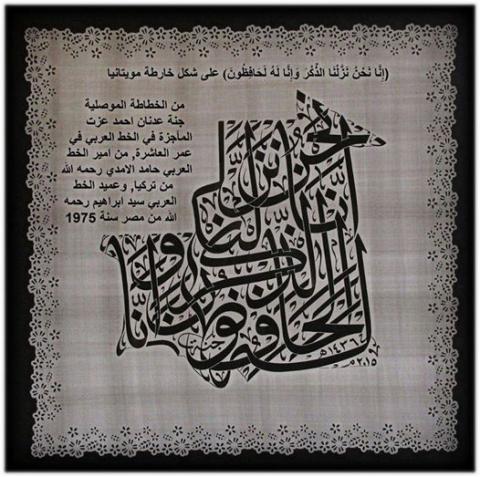 (إِنَّا نَحْنُ نَزَّلْنَا الذِّكْرَ وَإِنَّا لَهُ لَحَافِظُونَ) على شكل خارطة موريتانيا
من الخطاطة الموصلية
جنة عدنان احمد عزت
المأجزة في الخط العربي في
عمر العاشرة، من امير الخط
العربي حامد الامدي رحمه الله
من تركيا, وعميد الخط
العربي سيد ابراهيم رحمه
الله من مصر سنة 1975
إنا نحن نزلنا الذكر وإنا له لحافظون
١٤٣٦هـ
٢٠١٥م